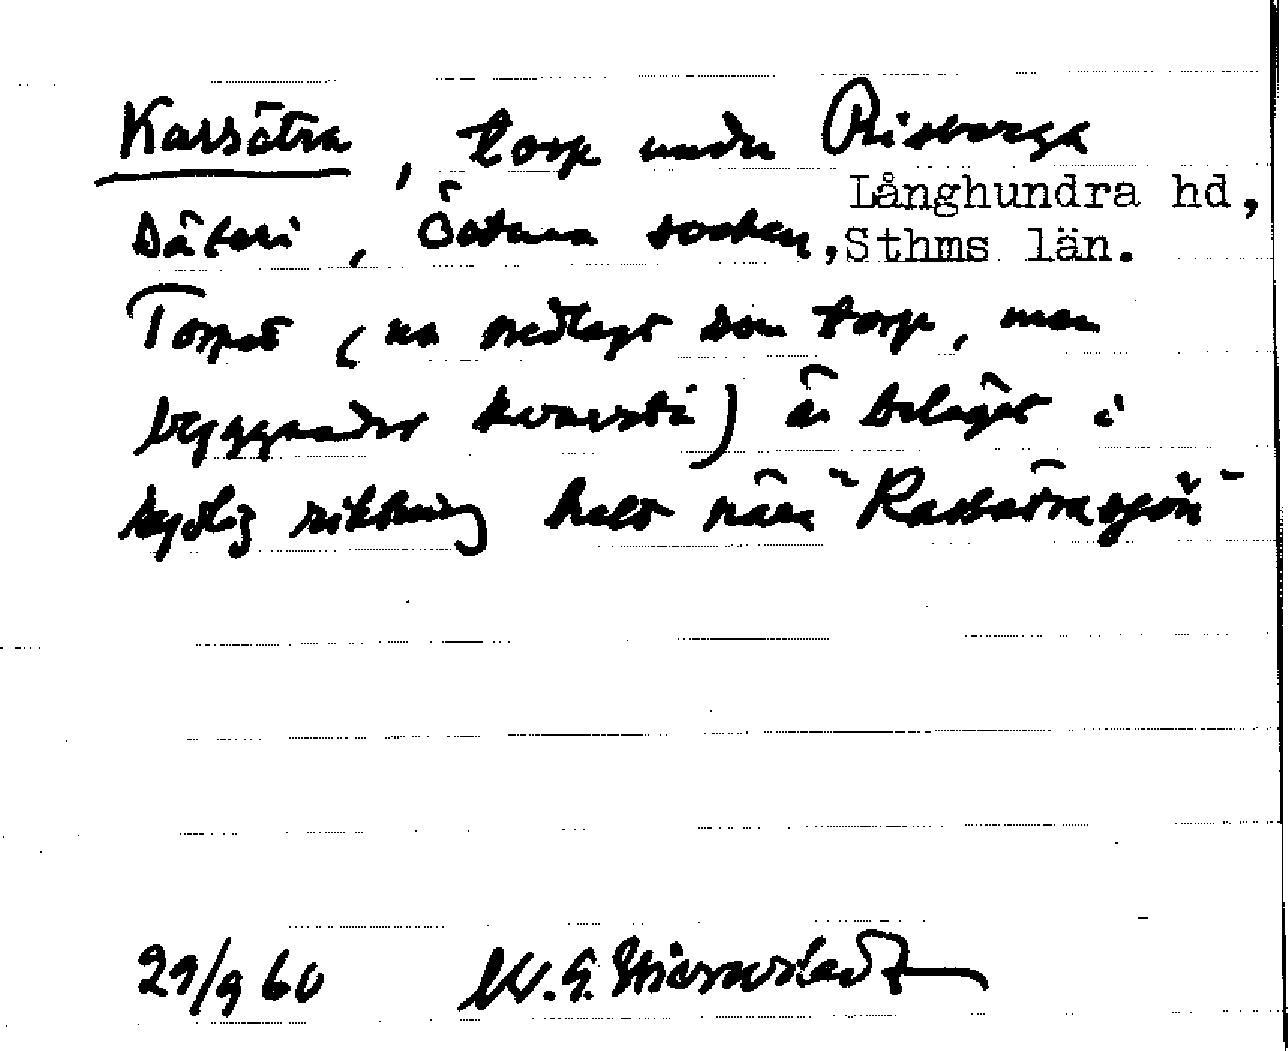 Karsätra, torp under Risberga
Långhundra hd,
Säteri, Östuna socken, Sthms län.
Torpet (nu nedlagt som torp, men
byggnader kvarstå) är beläget i
sydlig riktning helt nära "Kassätrasjön"
29/9 60 W. G.